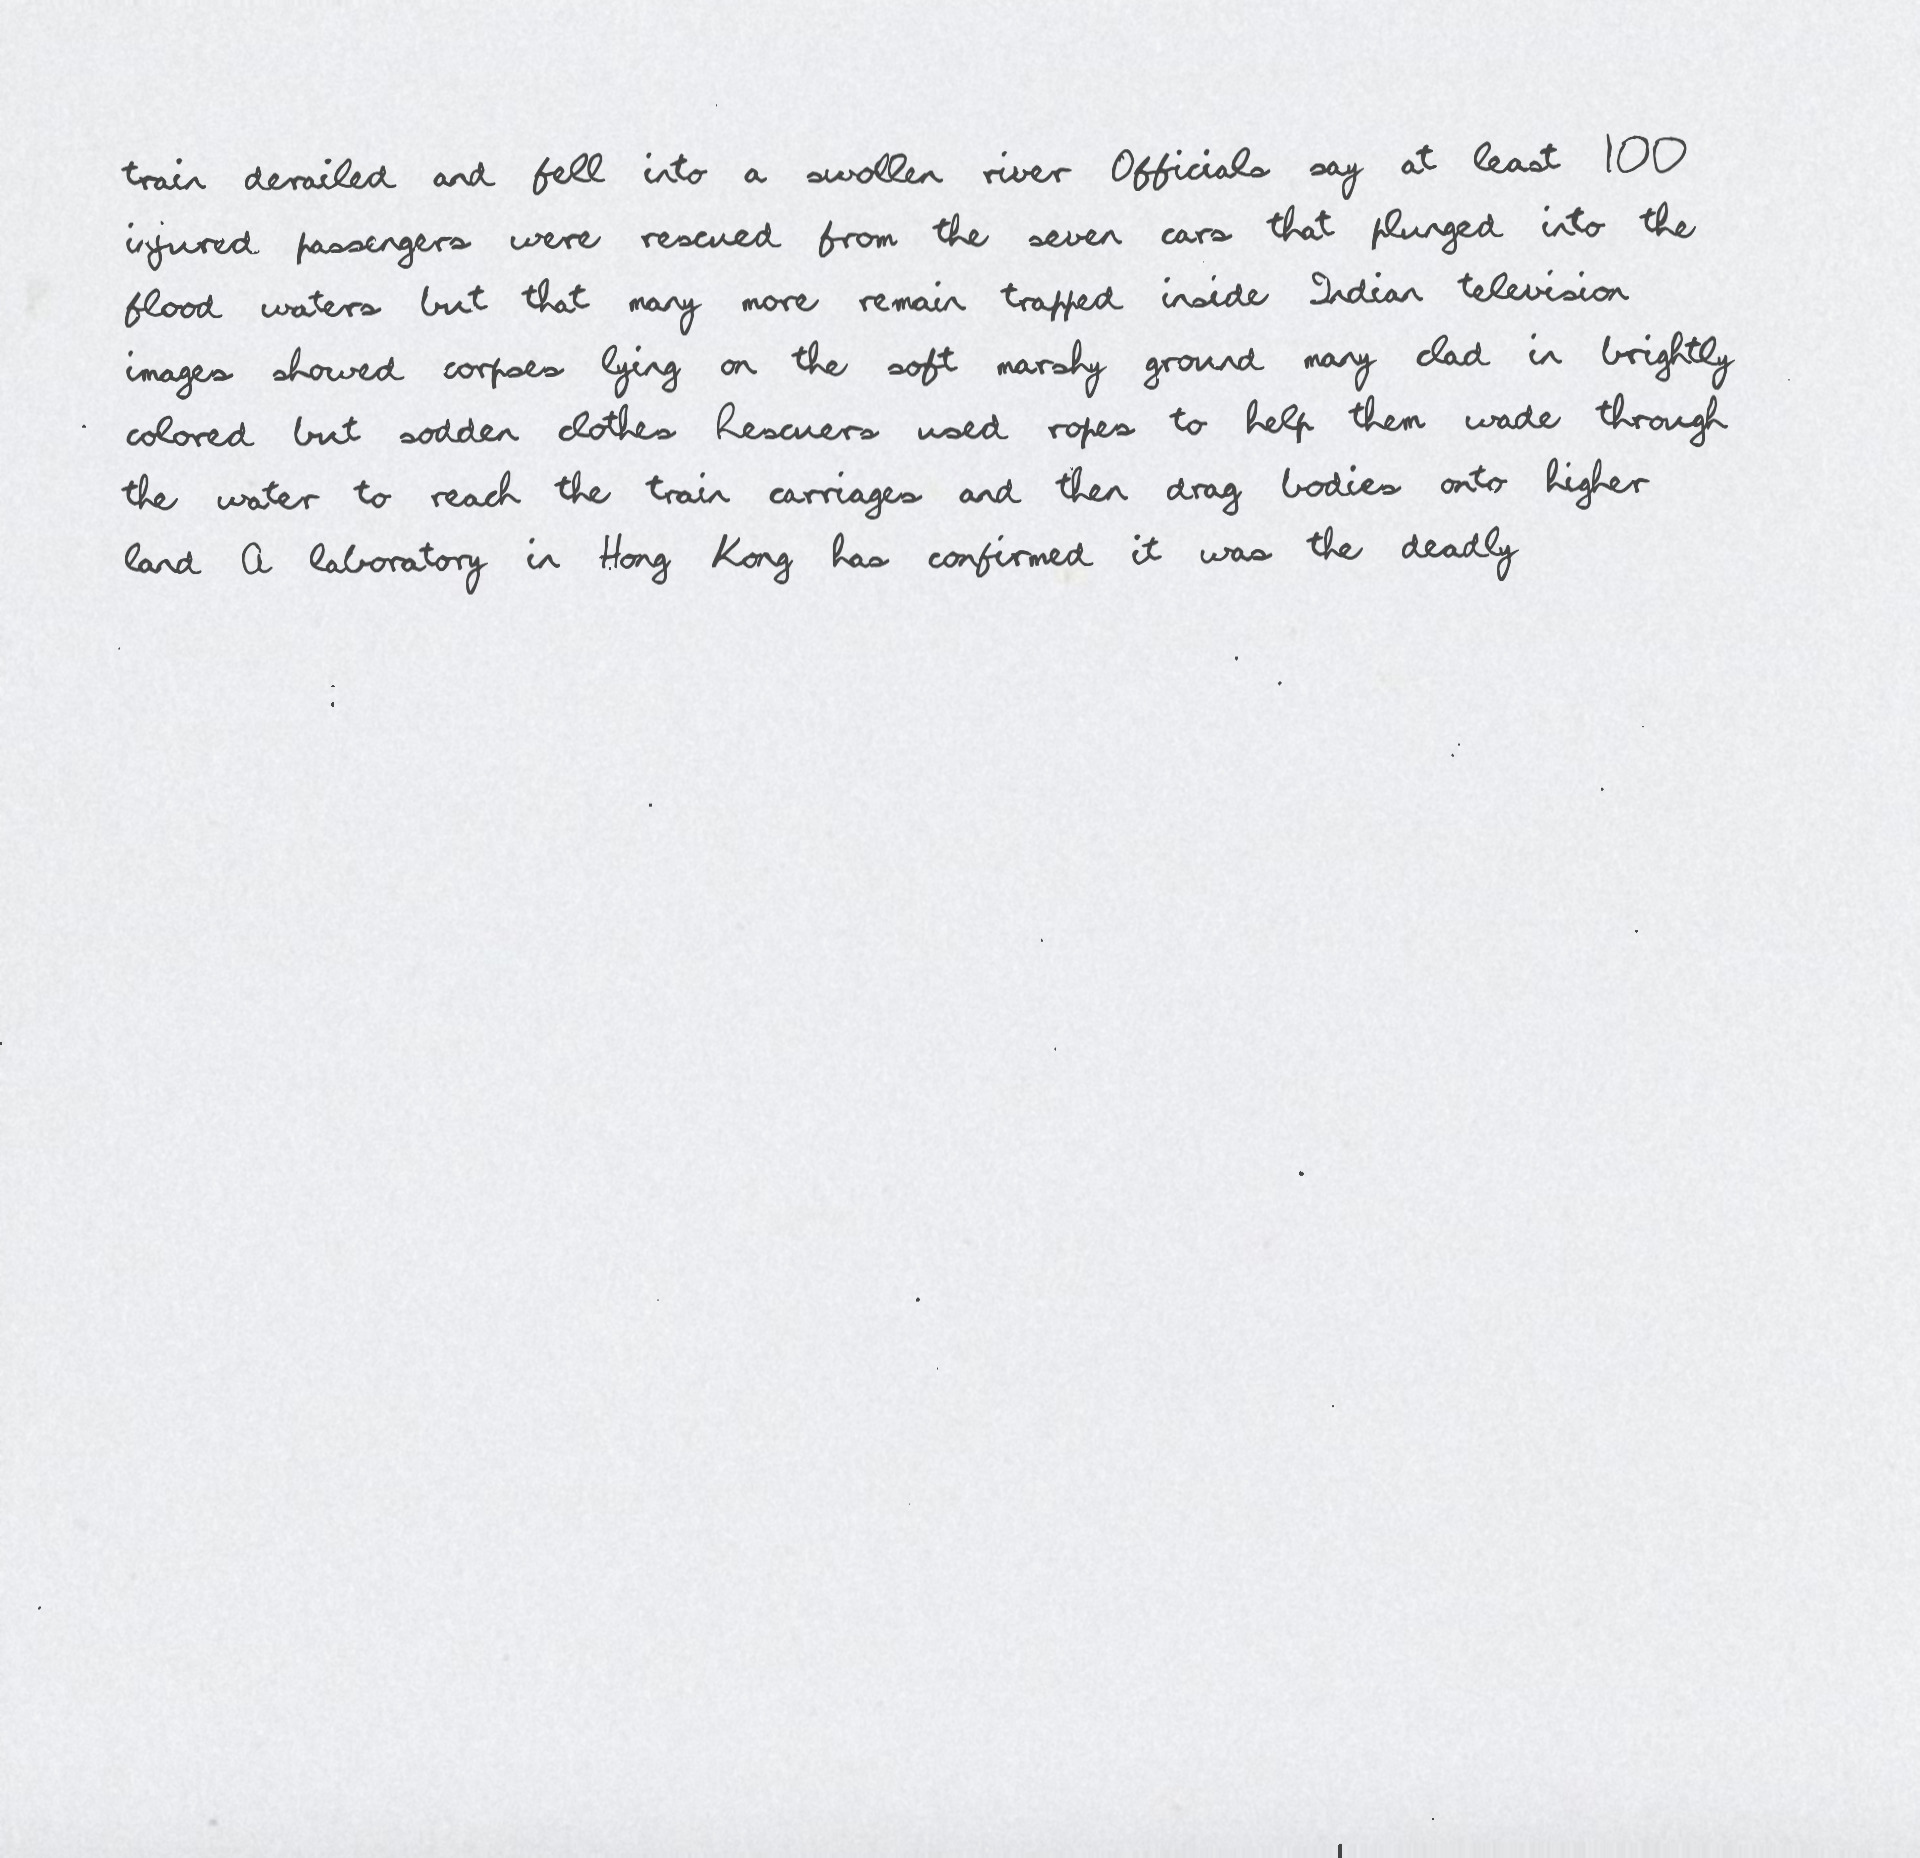 train derailed and fell into a swollen river Officials say at least 100
injured passengers were rescued from the seven cars that plunged into the
flood waters but that many more remain trapped inside Indian television
images showed corpses lying on the soft marshy ground many clad in brightly
colored but sodden clothes Rescuers used ropes to help them wade through
the water to reach the train carriages and then drag bodies onto higher
land A laboratory in Hong Kong has confirmed it was the deadly